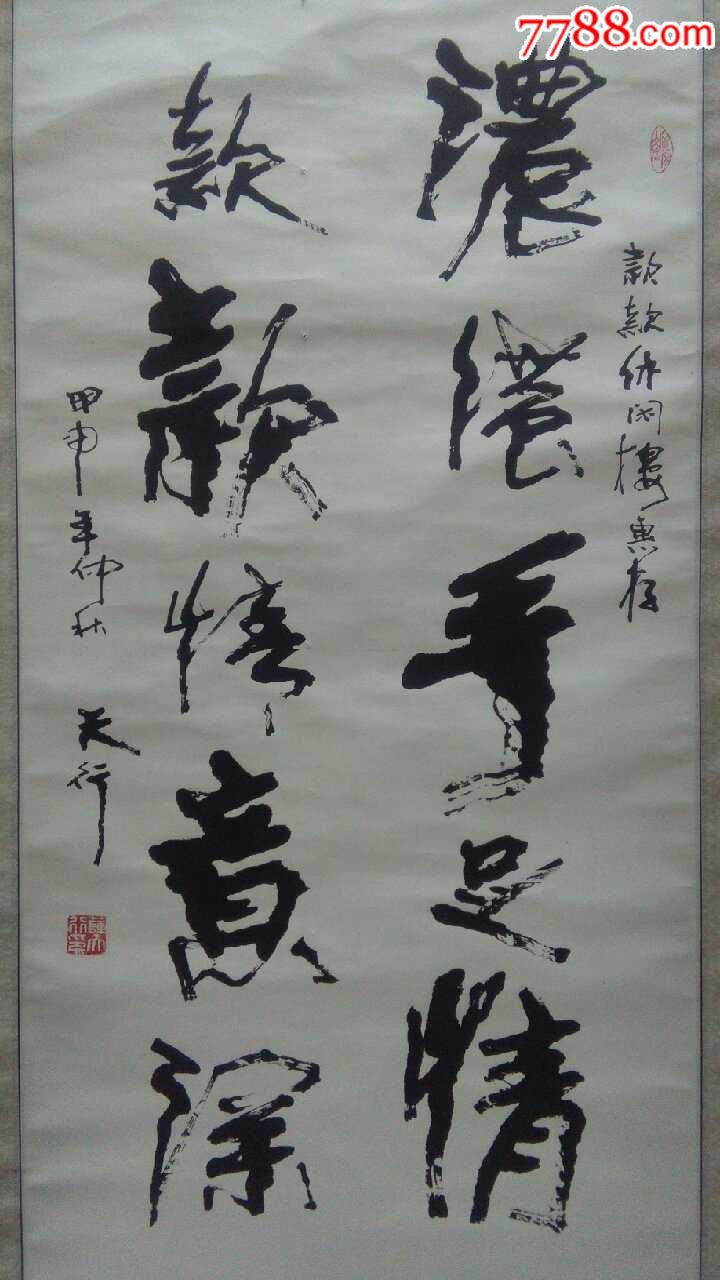 7788.com
款款休闲樓惠存
濃濃手足情
款款情意深
甲申年仲秋
天行